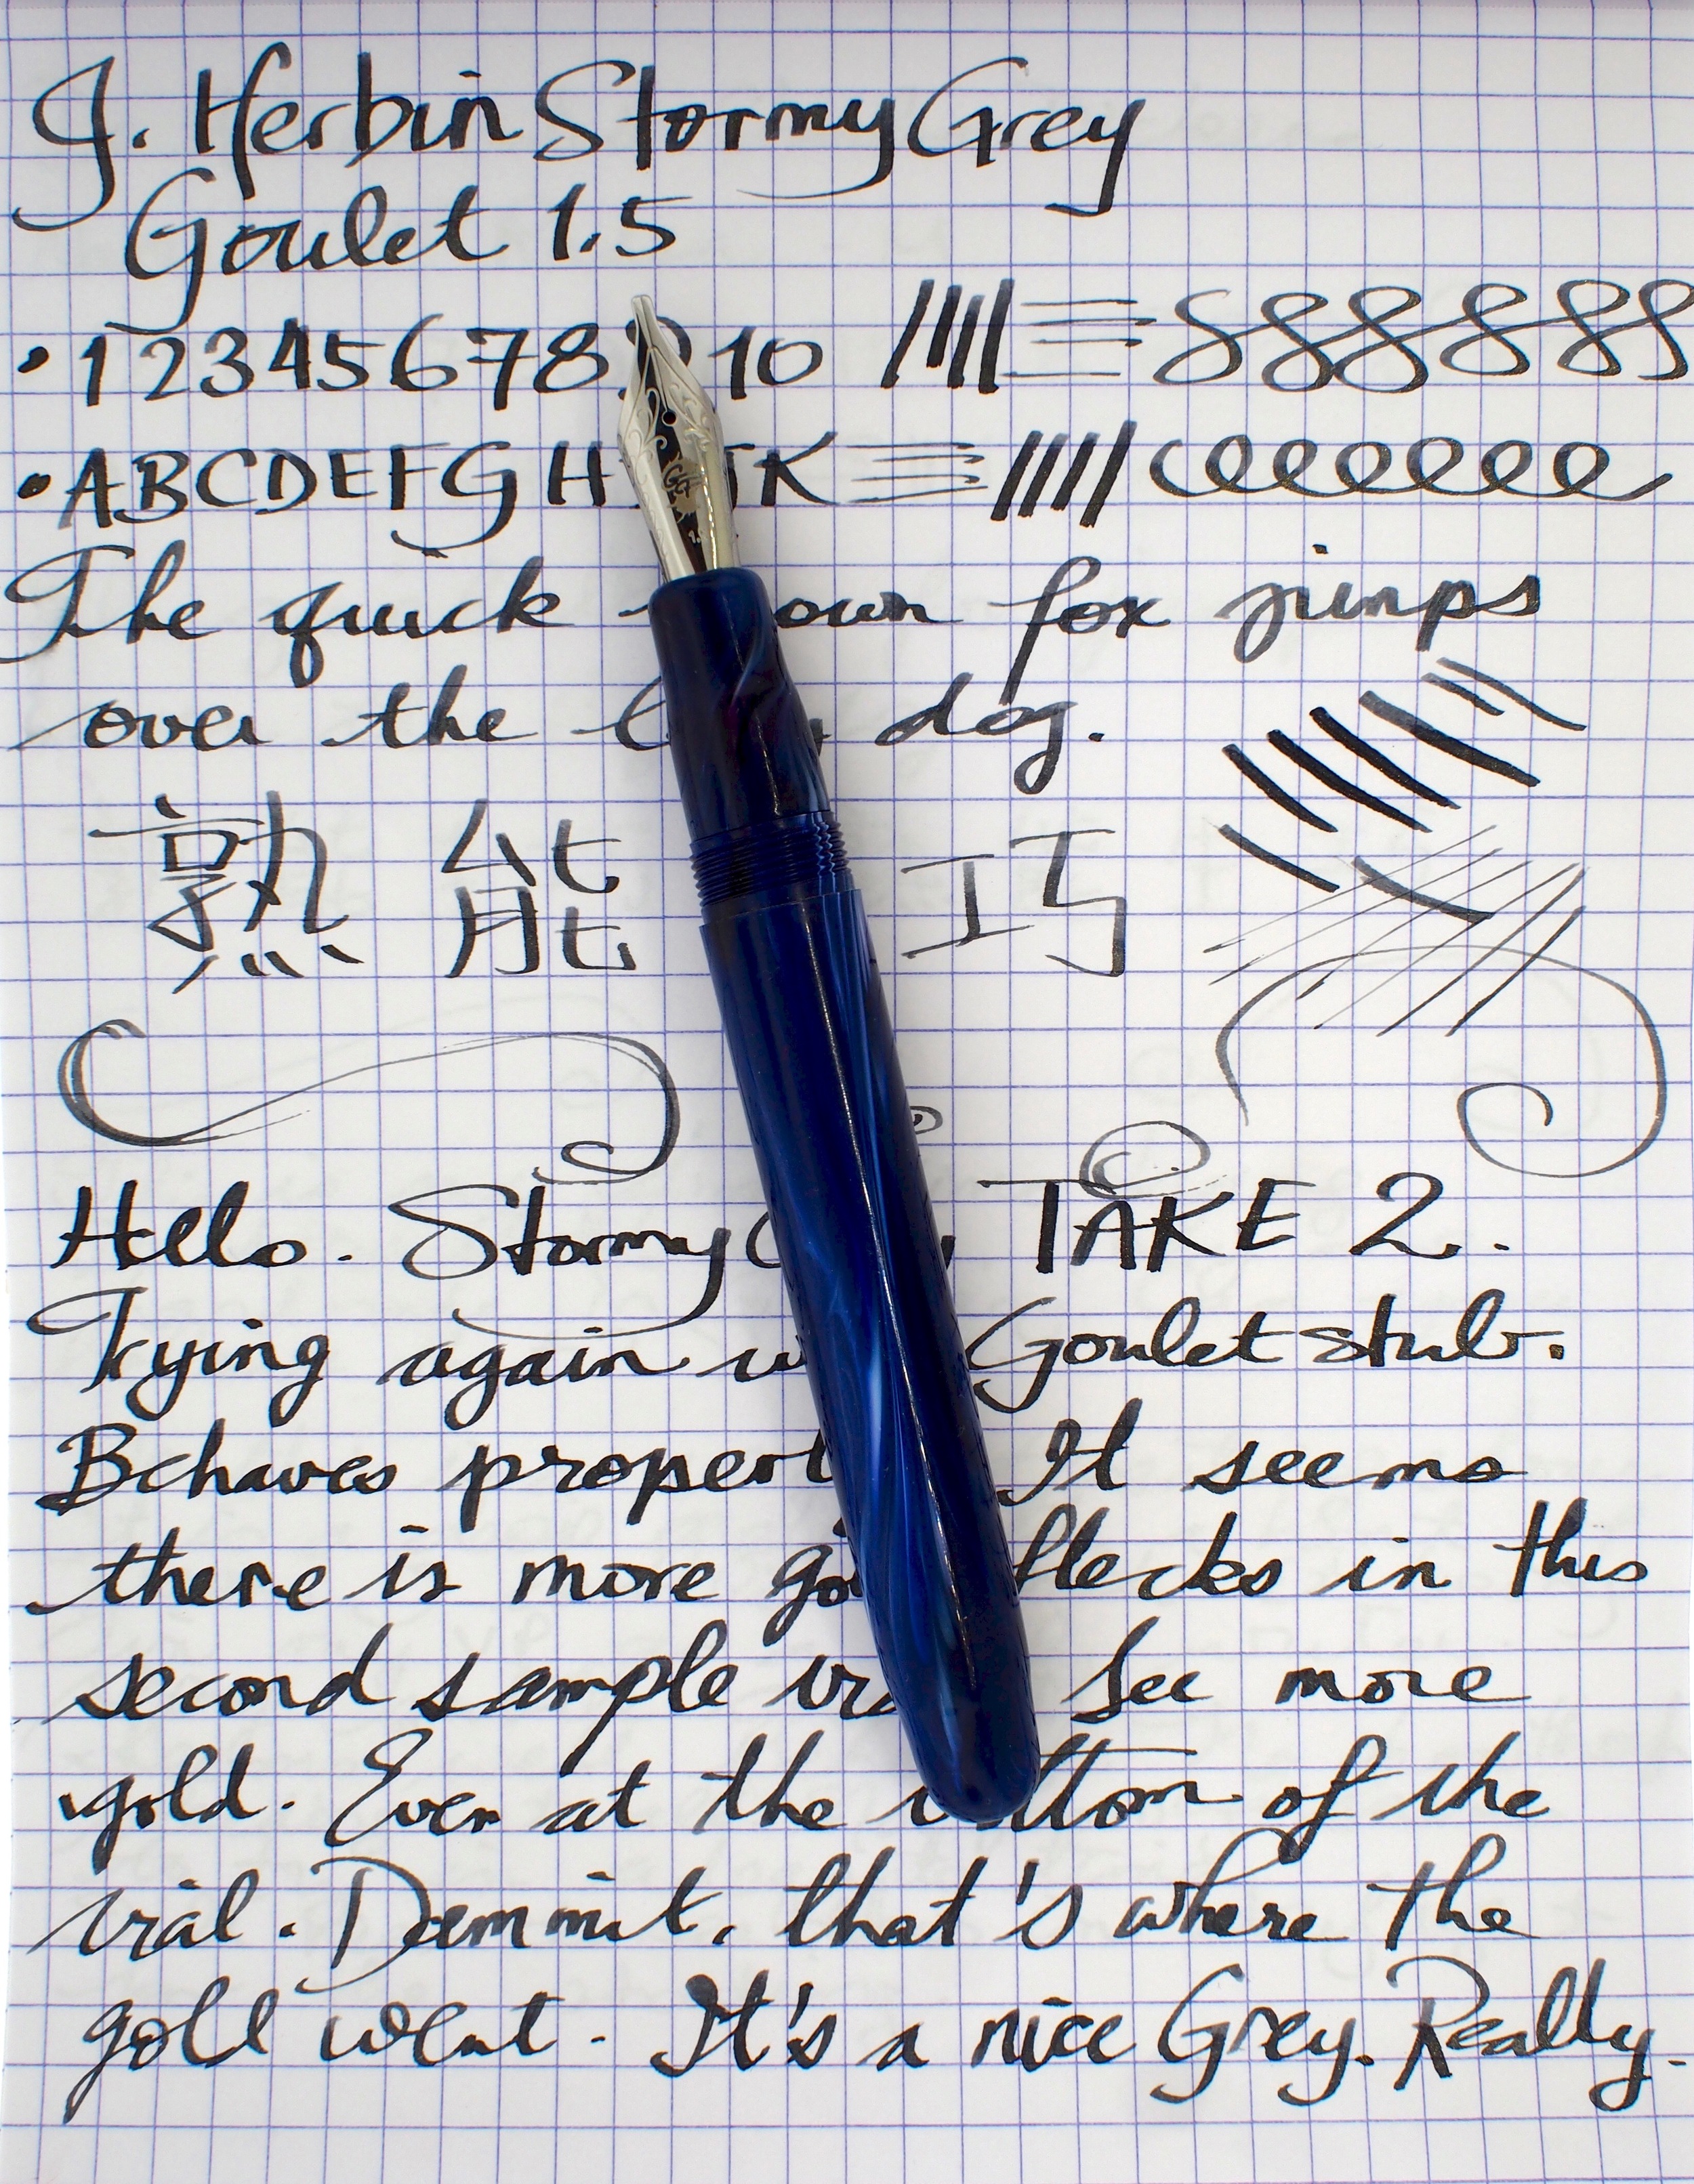 J. Herbin Stormy Grey
Goulet 1.5
• 1 2 3 4 5 6 7 8 9 10
• A B C D E F G H J K
The quick own fox jumps
over the dog.
熟 能 工巧
Hello. Stormy TAKE 2.
Trying again Goulet stub.
Behaves propert It seems
there is more flecks in this
second sample See more
gold. Even at the bottom of the
vial. Dammit, that's where the
gold went. It's a nice Grey. Really.